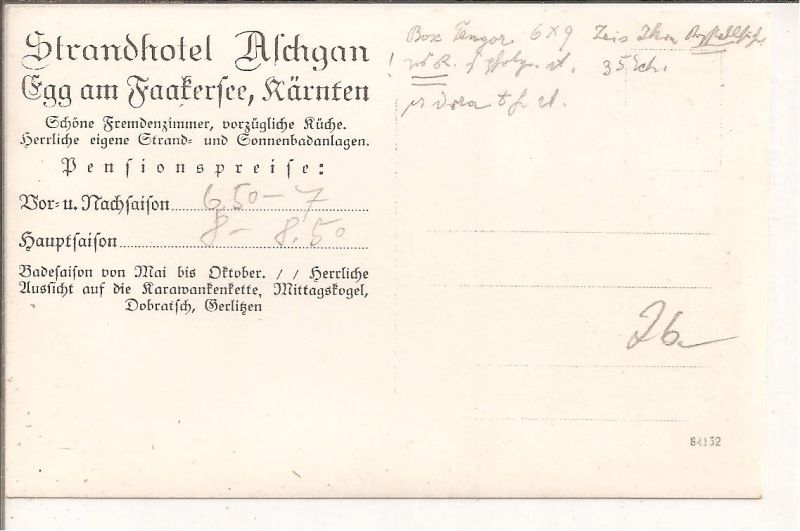 Strandhotel Aschgan
Egg am Faakersee, Kärnten
Schöne Fremdenzimmer, vorzügliche Küche.
Herrliche eigene Strand- und Sonnenbadanlagen.
Pensionspreise:
Vor- u. Nachsaison 6.50 – 7
Hauptsaison 8 – 8.50
Badesaison von Mai bis Oktober. // Herrliche
Aussicht auf die Karawankenkette, Mittagskogel,
Dobratsch, Gerlitzen
Box Tengor 6x9 Zeis Ikon
35 Sch.
84132